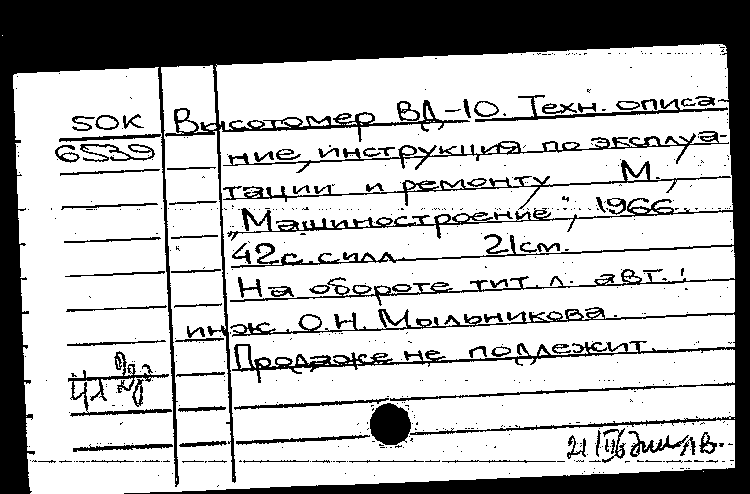 50К Высотомер ВД-10. Техн. описа-
6539 ние, инструкция по эксплуа-
тации и ремонту М.,
„Машиностроение", 1966.
42с. с илл. 21см.
На обороте тит. л. авт.:
инж. О.Н. Мыльникова.
Продаже не подлежит.
Ч1
21/